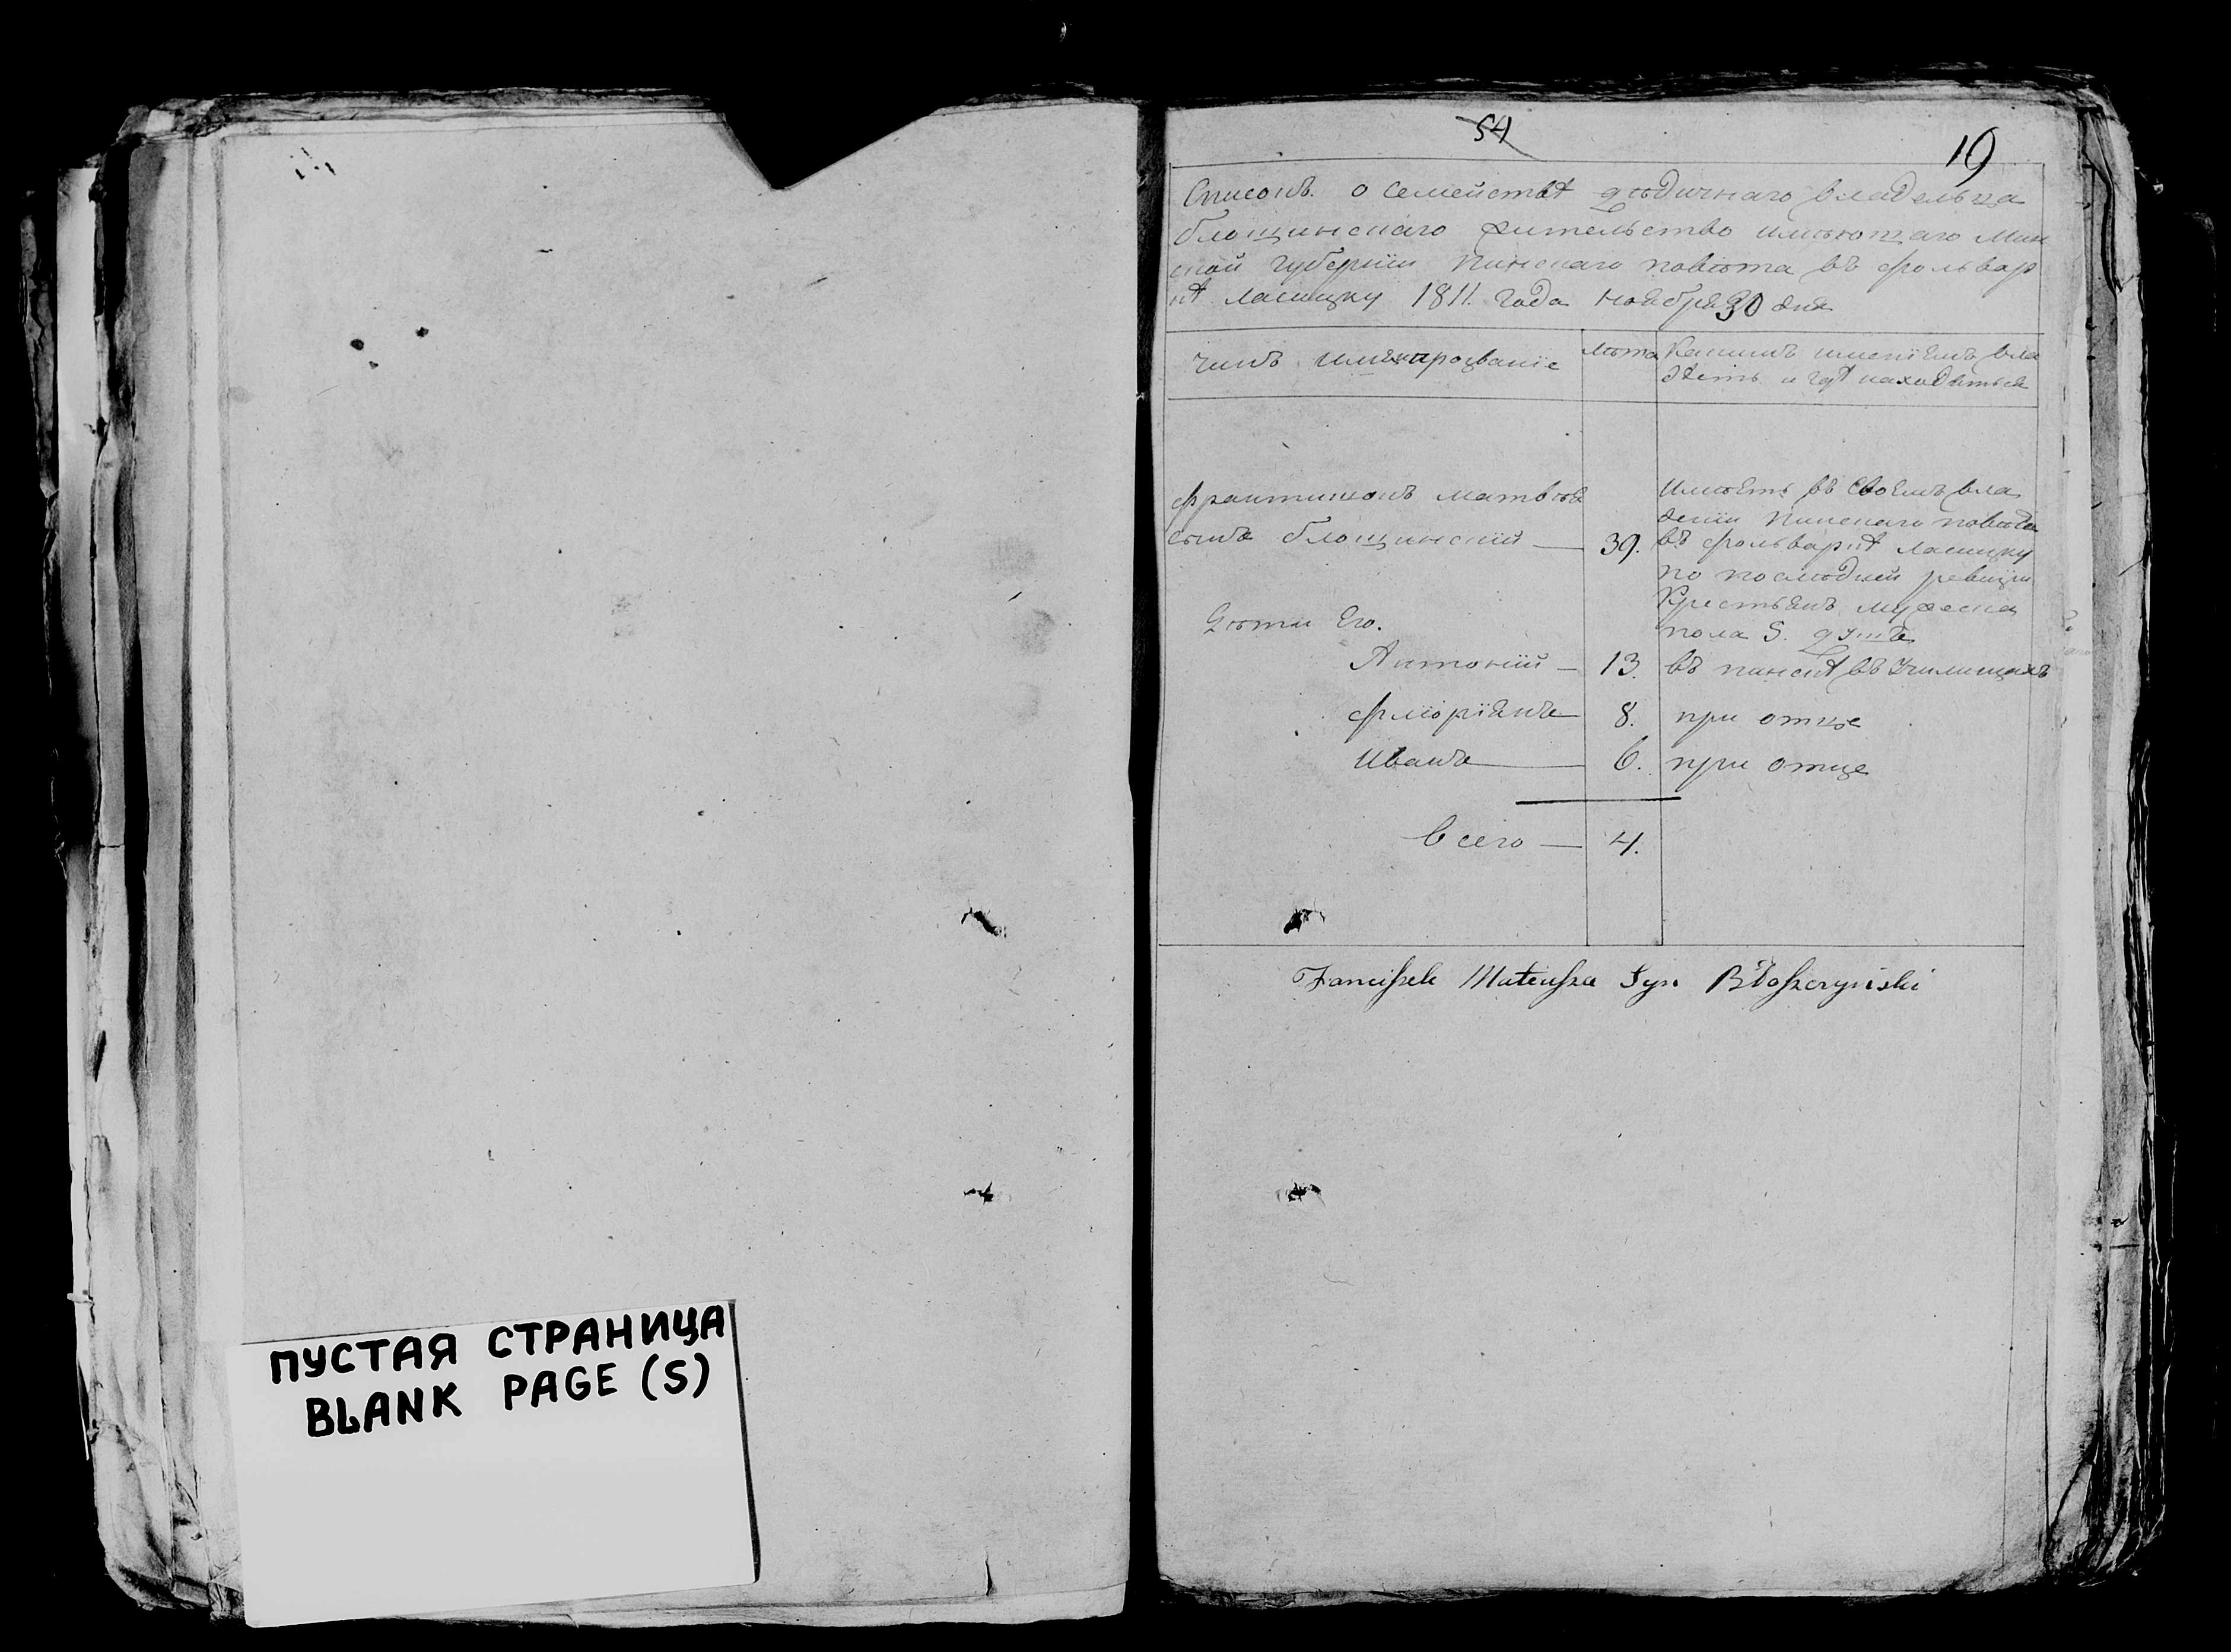 ПУСТАЯ СТРАНИЦА
BLANK PAGE (S)
54
19
Списокъ о семействѣ дѣдичнаго владельца
блощинскаго жительство имѣющаго Мин
ской губерніи Пинскаго повѣта въ фольвар
кѣ Ласицку 1811. года ноября 30 дня
Чинъ имя и прозваніе
лѣта
Какимъ имениемъ вла
дѣетъ и гдѣ находится
Францишокъ матвѣя
сынъ блощинскій — 39.
Имѣетъ въ своемъ вла
дении Пинскаго повѣта
въ фольваркѣ Ласицку
по послѣдней ревизии
Крестьянъ мужеска
пола 5. душъ
Дѣти Его.
Антоній — 13. въ пинскѣ въ Училищахъ
Флиоріянъ — 8. при отце
Иванъ — 6. при отце
Всего — 4.
Franciszek Mateusza Syn Błoszczyński